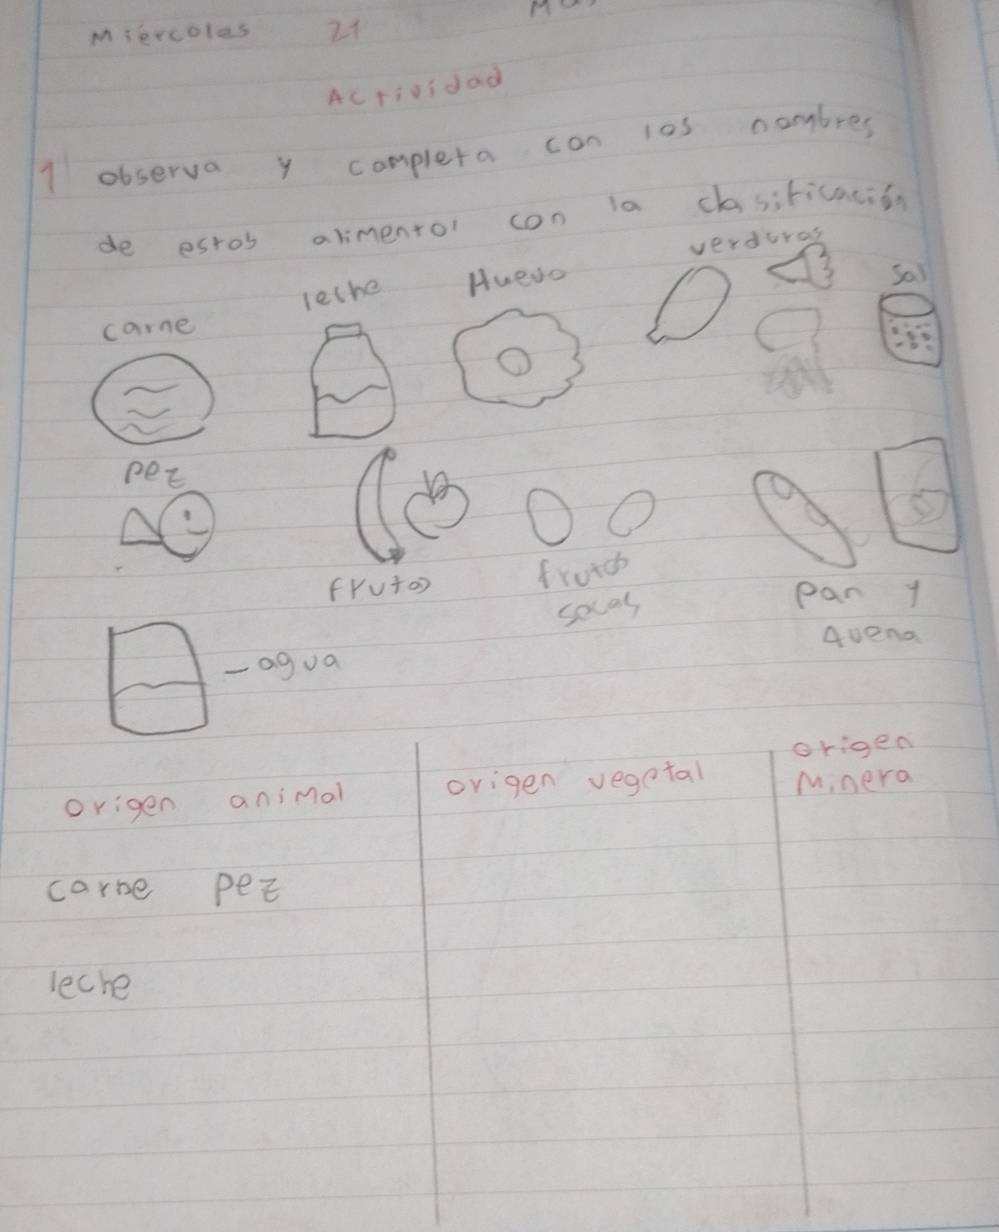 Miércoles 21
Actividad
1 observa y completa con los nombres
de estos alimentos con la clasificación
carne leche Huevo verduras sal
pez
frutas frutos
secos
pan y
Avena
- agua
origen animal origen vegetal origen
Minera
carne pez
leche